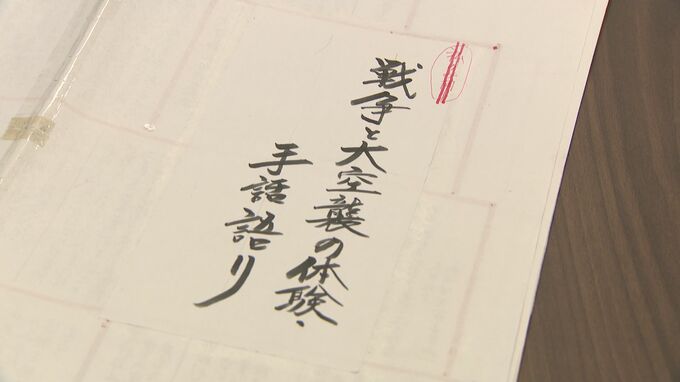 戦争と大空襲の体験・
手話語り